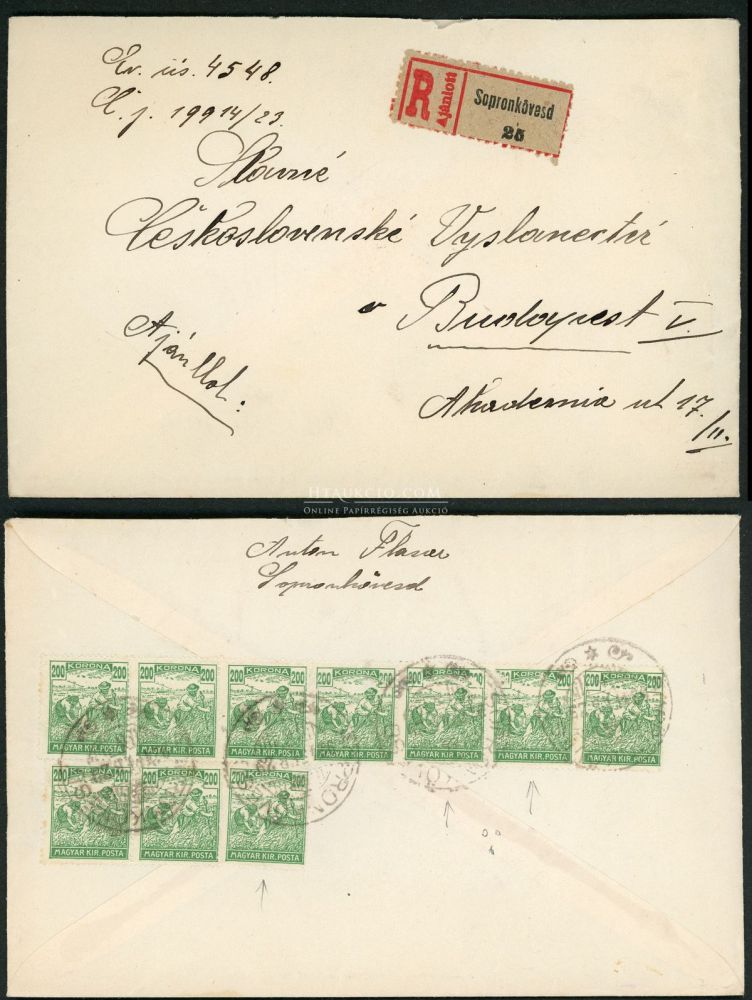 Ev. üs. 4548.
C. j. 19914/23.
R
Ajánlott
Sopronkövesd
25
Slavné
Československé Vyslanectví
v Budapest V.
Ajánlot:
Akademia ut 17.
/II.
HTAUKCIO.COM
ONLINE PAPÍRRÉGISÉG AUKCIÓ
Anton
Sopronkövesd
200 KORONA 200
MAGYAR KIR. POSTA
200 KORONA 200
MAGYAR KIR. POSTA
200 KORONA 200
MAGYAR KIR. POSTA
200 KORONA 200
MAGYAR KIR. POSTA
200 KORONA 200
MAGYAR KIR. POSTA
200 KORONA 200
MAGYAR KIR. POSTA
200 KORONA 200
MAGYAR KIR. POSTA
200 KORONA 200
MAGYAR KIR. POSTA
200 KORONA 200
MAGYAR KIR. POSTA
200 KORONA 200
MAGYAR KIR. POSTA